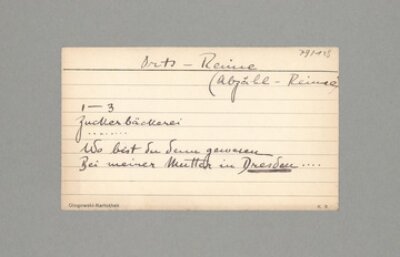 Orts – Reime
(Abzähl – Reime)
1 – 3
Zuckerbäckerei
........
Wo bist du denn gewesen
Bei meiner Mutter in Dresden ....
Glogowski-Kartothek